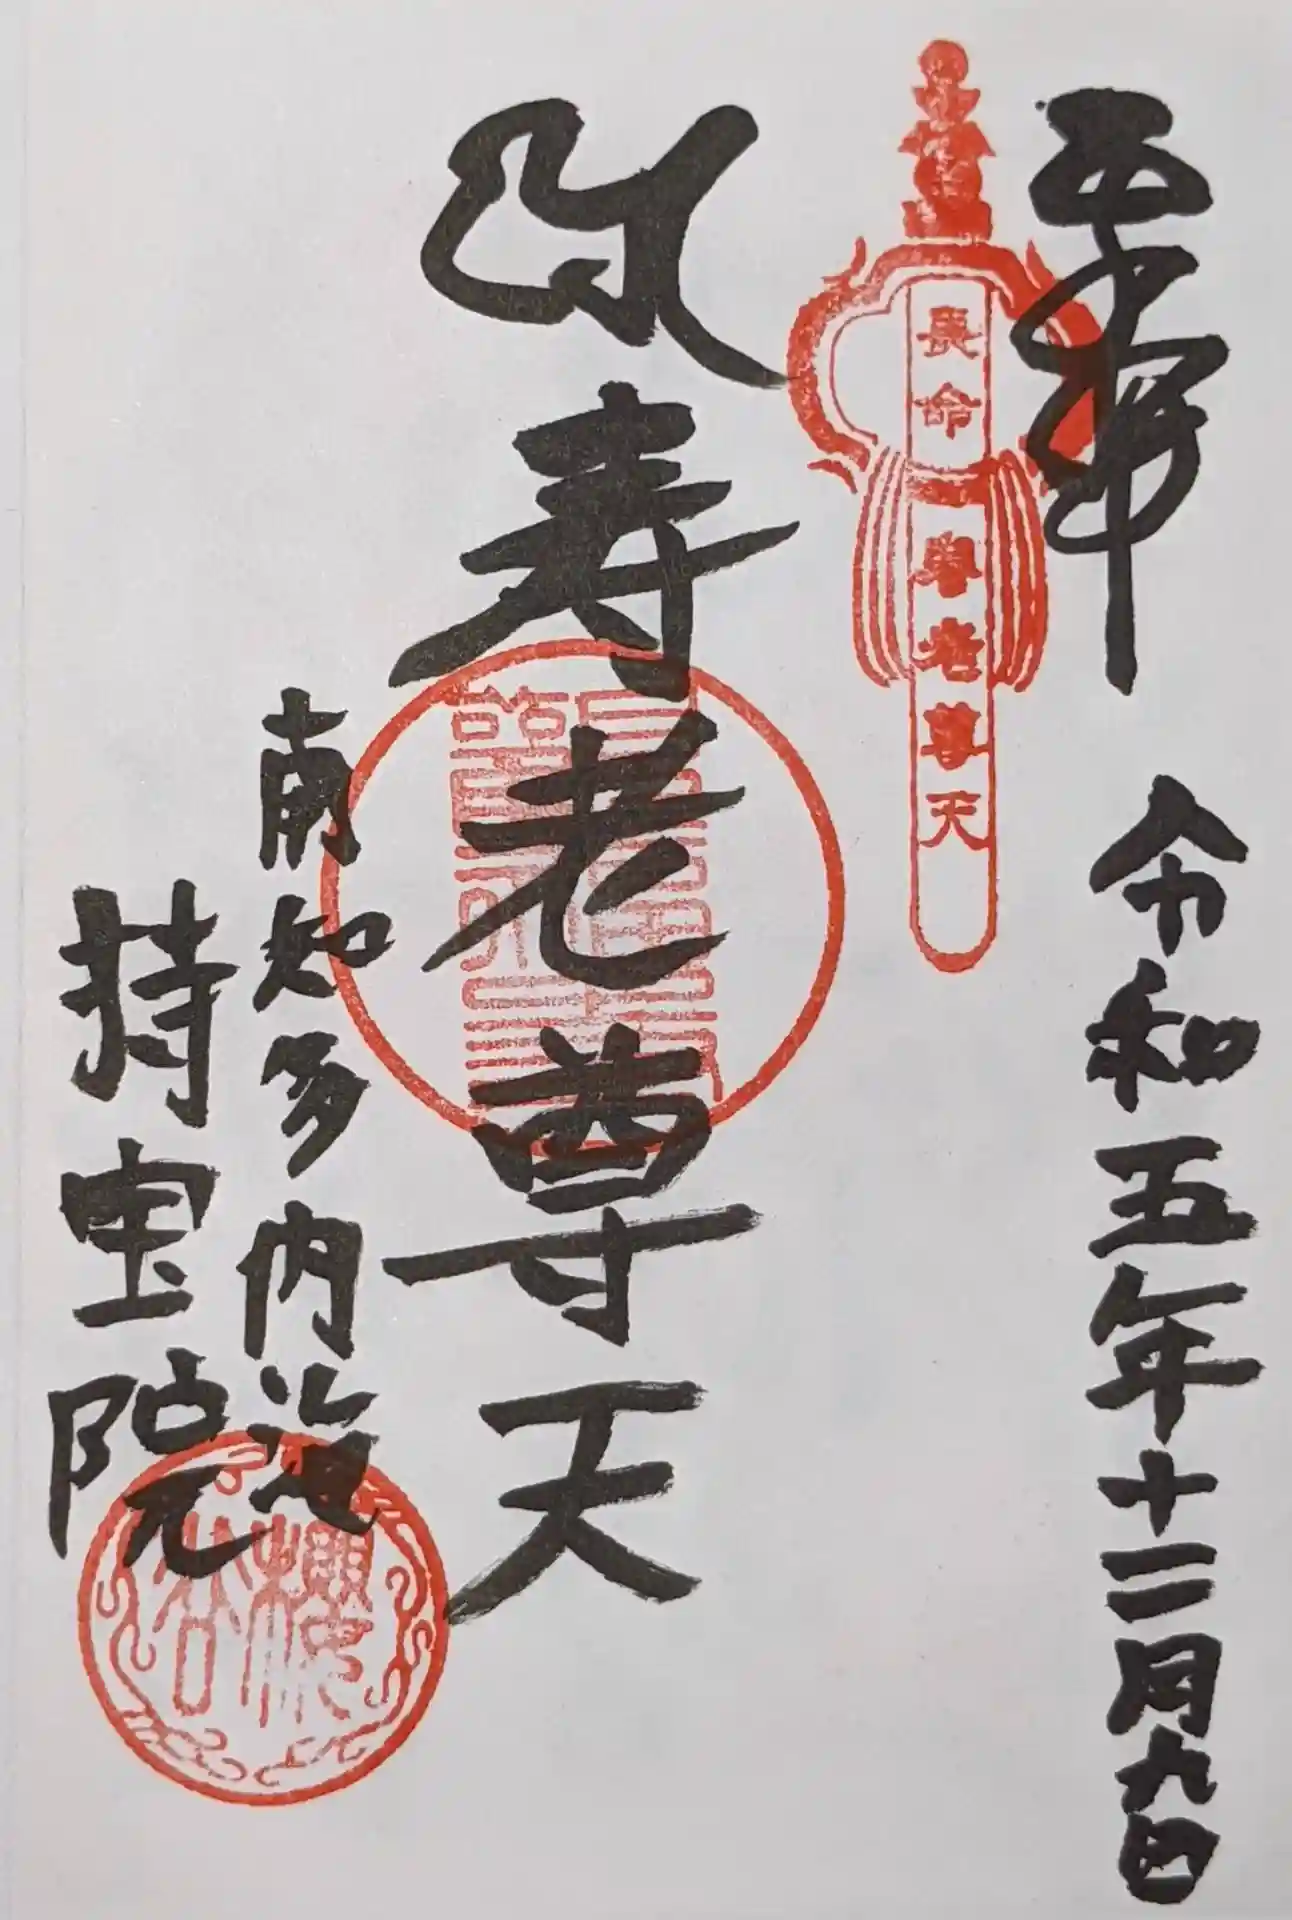 奉拝 令和五年十二月九日
長命
壽老尊天
寿老尊天
南知多内海
持宝院